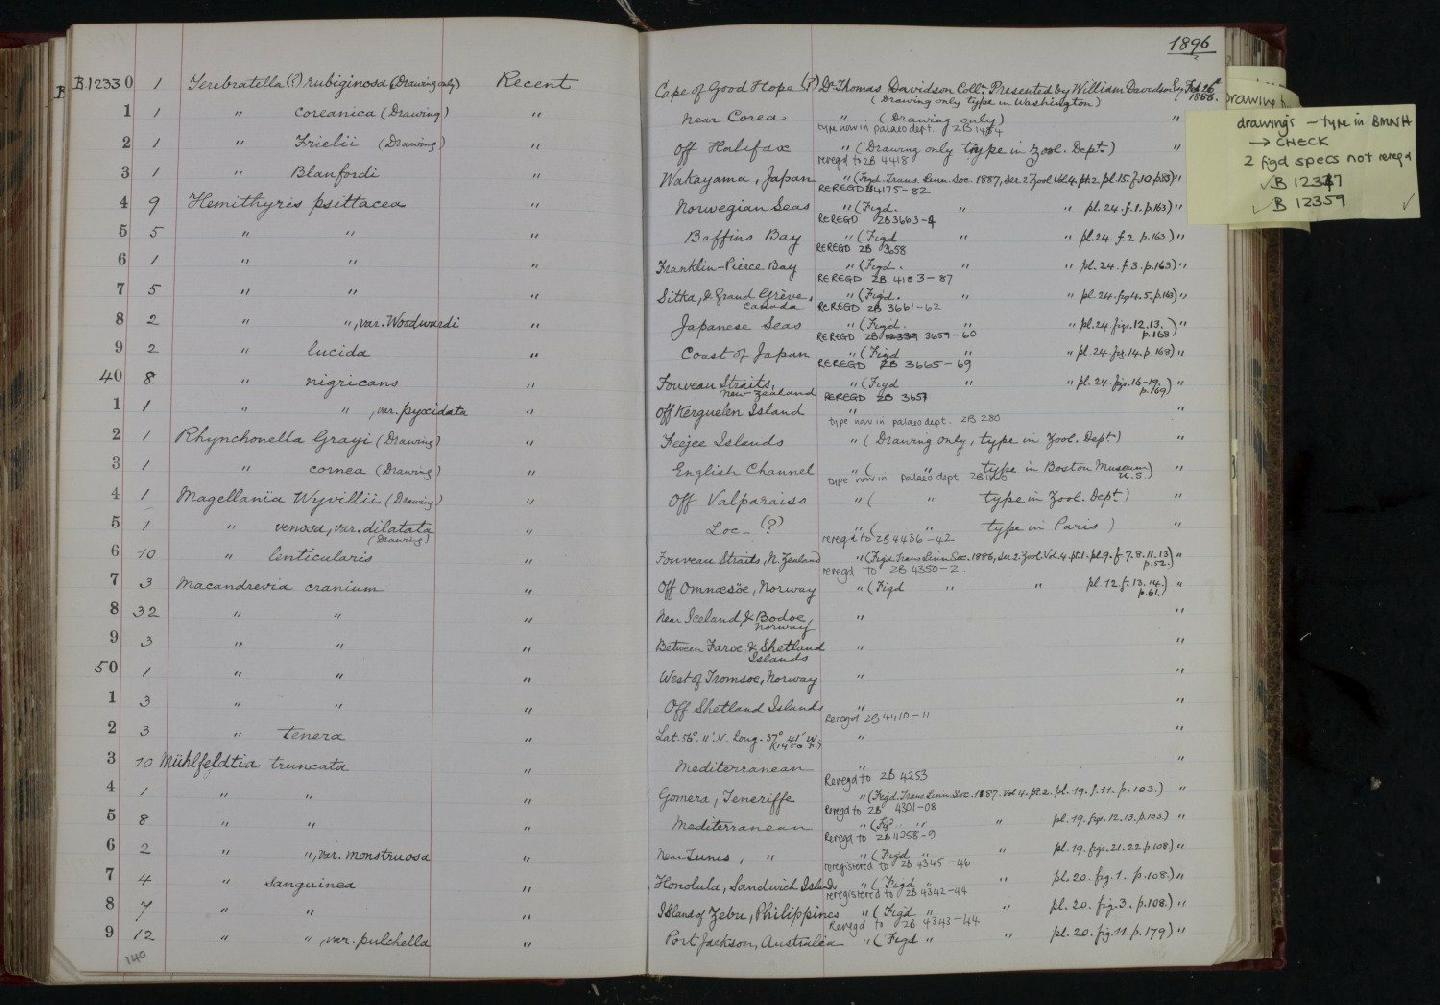 1896
B.12330 1 Terebratella (?) rubiginosa (Drawing only) Recent Cape of Good Hope (?) Dr Thomas Davidson Coll. Presented by William Davidson Esq Feb 26
(Drawing only type in Washington)
1 1 " coreanica (Drawing) " Near Corea " (Drawing only) "
type now in palaeo dept. 2B
2 1 " Frielii (Drawing) " Off Halifax " (Drawing only type in Zool. Dept.) "
reregd to 2B 4418
3 1 " Blanfordi " Wakayama, Japan " (Figd. Trans. Linn. Soc. 1887, Ser. 2 Zool. Vol. 4. pt. 2. pl. 15. f. 10. p. 83) "
REREGD 4175-82
4 9 Hemithyris psittacea " Norwegian Seas " (Figd. " " pl. 24. f. 1. p. 163) "
REREGD 2B3663-4
5 5 " " " Baffins Bay " (Figd " " pl. 24 f. 2 p. 163) "
REREGD 2B 3658
6 1 " " " Franklin-Pierce Bay " (Figd. " " pl. 24. f. 3. p. 163) "
REREGD 2B 4183-87
7 5 " " " Sitka, & Grand Grève, Canada " (Figd. " " pl. 24. fig 4. 5. p. 163) "
REREGD 2B 3661-62
8 2 " ", var. Woodwardi " Japanese Seas " (Figd. " " pl. 24 figs. 12. 13. p. 168) "
REREGD 2B 3659-60
9 2 " lucida " Coast of Japan " (Figd " " pl. 24. fig 14. p. 168) "
REREGD 2B 3665-69
40 8 " nigricans " Foveau Straits, New-Zealand " (Figd " " pl. 24 figs. 16-19. p. 169) "
REREGD 2B 3657
1 1 " ", var. pyxidata " Off Kerguelen Island " "
type now in palaeo dept. 2B 280
2 1 Rhynchonella Grayi (Drawing) " Feejee Islands " (Drawing only, type in Zool. Dept) "
3 1 " cornea (Drawing) " English Channel " ( " type in Boston Museum U.S.) "
type now in palaeo dept
4 1 Magellania Wyvillii (Drawing) " Off Valparaiso " ( " type in Zool. Dept.) "
5 1 " venosa, var. dilatata (Drawing) " Loc. (?) " ( " type in Paris) "
reregd to 2B4436-42
6 10 " lenticularis " Foveau Straits, N. Zealand " (Figd Trans Linn Soc. 1886, Ser. 2. Zool. Vol. 4. pt. 1. pl. 9. f. 7. 8. 11. 13 p. 52.) "
reregd to 2B 4350-2.
7 3 Macandrevia cranium " Off Omnæsöe, Norway " (Figd " " pl. 12. f. 13. 14. p. 61.) "
8 32 " " " Near Iceland, & Bodoe, Norway " "
9 3 " " " Between Faroe & Shetland Islands " "
50 1 " " " West of Tromsoe, Norway " "
1 3 " " " Off Shetland Islands " "
Reregd 2B 4410-11
2 3 " tenera " Lat. 56° 11' N. Long. 37° 41' W. " "
3 10 Mühlfeldtia truncata " Mediterranean " "
Reregd to 2B 4253
4 1 " " " Gomera, Teneriffe " (Figd. Trans Linn Soc. 1887. Vol 4. pt. 2. pl. 19. f. 11. p. 103.) "
Reregd to 2B 4301-08
5 8 " " " Mediterranean " (Fig " " pl. 19. figs. 12. 13. p. 103.) "
Reregd to 2B 4258-9
6 2 " ", var. monstruosa " Near Tunis, " " (Figd " pl. 19. figs. 21. 22 p. 108) "
reregistered to 2B 4345-46
7 4 " sanguinea " Honolula, Sandwich Islands " (Figd " " pl. 20. fig. 1. p. 108.) "
reregistered to 2B 4342-44
8 7 " " " Island of Zebu, Philippines " (Figd " " pl. 20. fig. 3. p. 108.) "
Reregd to 2B 4343-44
9 12 " ", var. pulchella " Port Jackson, Australia " (Figd " " pl. 20. fig. 11. p. 179) "
140
drawings - type in BMNH
→ CHECK
2 figd specs not reregd
✓ B 12347
✓ B 12359 ✓